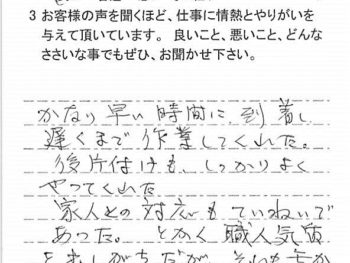 3 お客様の声を聞くほど、仕事に情熱とやりがいを
与えて頂いています。 良いこと、悪いこと、どんな
ささいな事でもぜひ、お聞かせ下さい。
かなり早い時間に到着し
遅くまで作業してくれた。
後片付けも、しっかりよく
やってくれた
家人との対応もていねいで
あった。 とかく職人気質